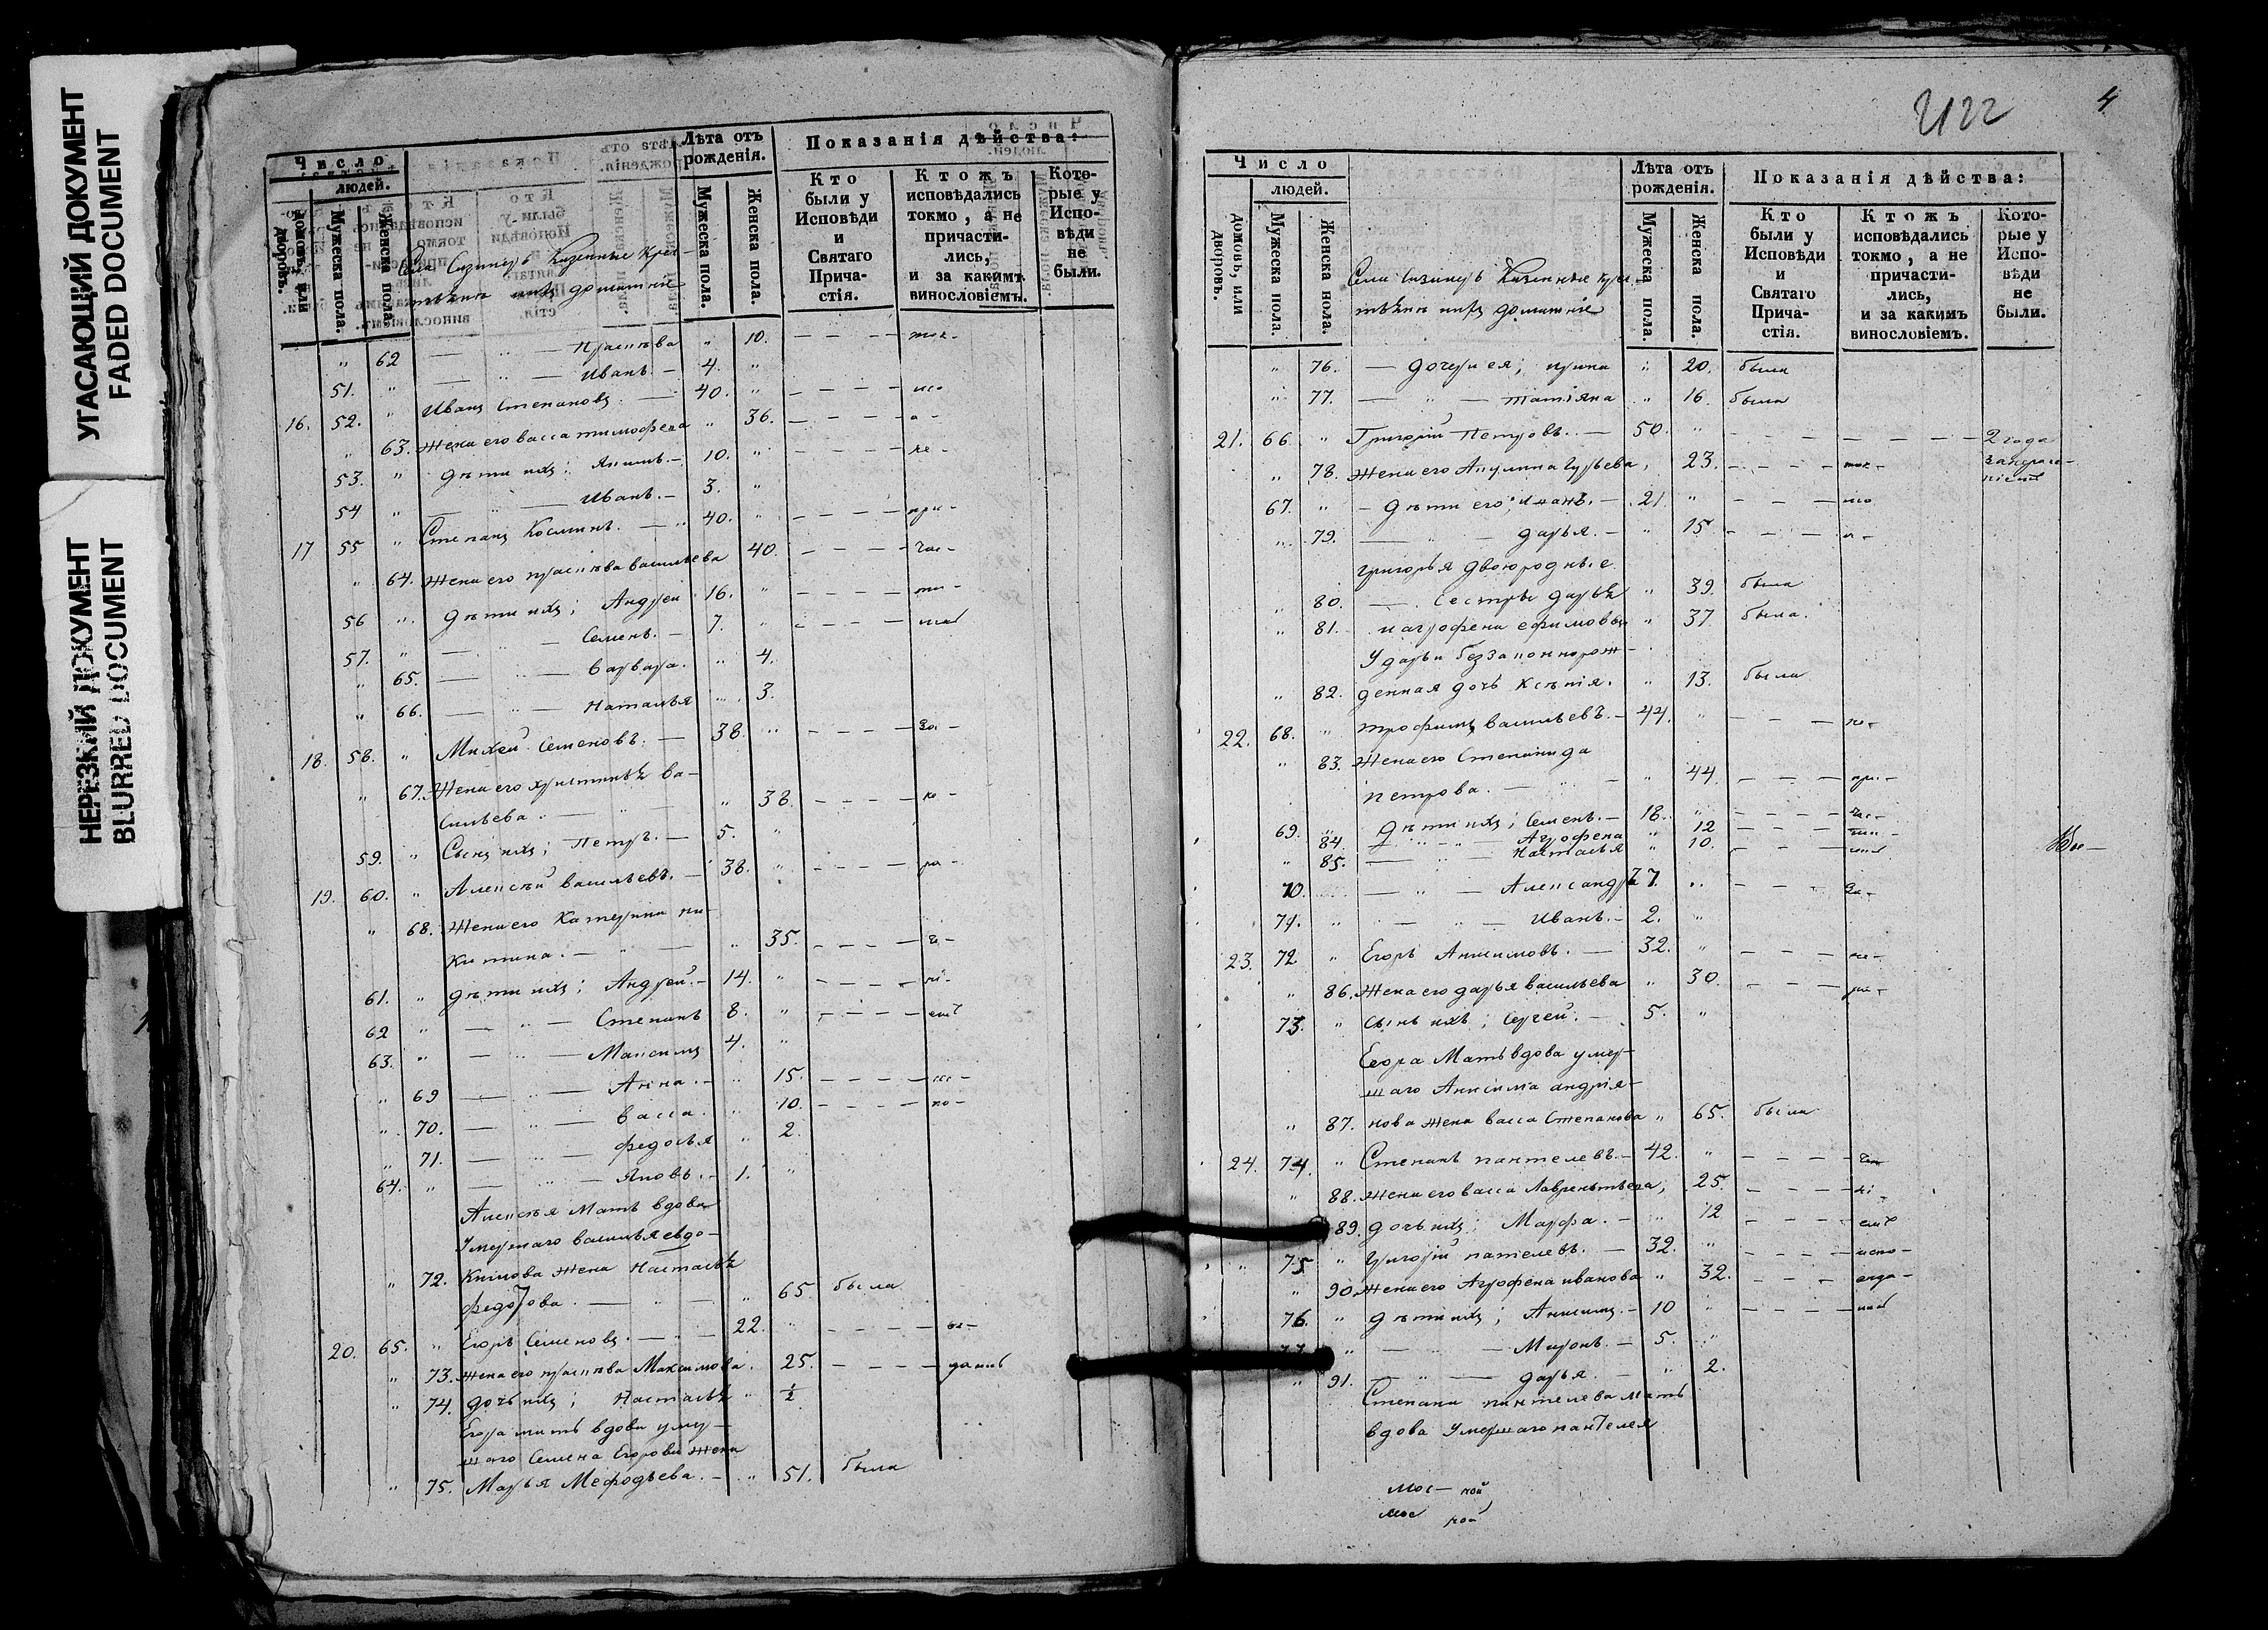 УГАСАЮЩИЙ ДОКУМЕНТ
FADED DOCUMENT
НЕРЕЗКИЙ ДОКУМЕНТ
BLURRED DOCUMENT
Число людей. Лѣта отъ рожденія. Показанія дѣйства:
домовъ, или дворовъ. Мужеска пола. Женска пола. Мужеска пола. Женска пола. Кто были у Исповѣди и Святаго Прича-стія. Ктожъ исповѣдались токмо, а не причасти-лись, и за какимъ винословіемъ. Кото-рые у Испо-вѣди не были.
Села Казенные Кре-
стьяне ихъ домашніе
" 62 — " — Праскева " 10. — — — ток-
51. " — " — Иванъ. — 4. "
16. 52. " Иванъ Степановъ. — 40. " — — — — исо
" 63. Жена его васса тимофеева " 36. — — — — а -
53. " дѣти ихъ: Якимъ. — 10. " — — — — не -
54 " — " — Иванъ. — 3. "
17 55 " Степанъ Косминъ. — " 40. " — — — — при -
" 64. Жена его праскева васильева 40. — — — — час -
56 " дѣти ихъ; Андреи 16. " — — — — ти -
57. " — " — Семенъ. — 7. " — — — —
" 65. — " — варвара. " 4.
" 66. — " — Наталья " 3.
18. 58. " Михей Семеновъ. — 38. " — — — — За -
" 67. Жена его христинья ва-
сильева. — " — " 38 — — — — не -
59. " Сынъ ихъ; Петръ. — 5. "
19. 60. " Алексѣй васильевъ. — 38. " — — — — ра -
" 68. Жена его Катерина ни-
китина. — " — " 35. — — — — че -
61. " дѣти ихъ; Андрей. — 14. " — — — — ні -
62 " — " — Степанъ 8. " — — — — емъ
63. " — " — Максимъ 4. "
" 69 — " — Анна. — " 15. — — — — ис -
" 70. — " — васса. " 10. — — — — по -
" 71. — " — федосья " 2.
64. " — " — Яковъ. — 1. "
Алексѣя Мать вдова
Умершаго василья евдо-
" 72. кимова жена Настасья
федорова. — " — " 65 была
20. 65. " Егоръ Семеновъ. — " — 22. " — — — — ве -
" 73. Жена его праскева Максимова. 25. — — — — даній
" 74. дочь ихъ; Настасья " ½
Егора мать вдова умер-
шаго Семена Егорова жена
" 75. Марья Мефодьева. — " 51. была
2122
4
Число людей. Лѣта отъ рожденія. Показанія дѣйства:
домовъ, или дворовъ. Мужеска пола. Женска пола. Мужеска пола. Женска пола. Кто были у Исповѣди и Святаго Прича-стія. Ктожъ исповѣдались токмо, а не причасти-лись, и за какимъ винословіемъ. Кото-рые у Испо-вѣди не были.
Села Казенные кре-
стьяне ихъ домашніе
" 76. — дочери ея; ирина " 20. была
" 77. — " — татіяна " 16 была
21. 66 " Григорій Петровъ. — 50. " — — — — — — — 2 года
" 78. Жена его Акулина Гурьева, 23. — — — — ток -
67. " — дѣти его; Иванъ. — 21 " — — — исо
" 79. — " — дарья. — " 15. — — — — и -
григорья двоюродные
" 80. — сестры дарья " 39. была
" 81. и агрофена ефимовы " 37. была.
У дарьи беззаконнорож-
" 82. денная дочь Ксенія. " 13. была
22. 68. " трофимъ васильевъ. — 44. " — — — не -
" 83. Жена его Степанида
петрова. — " — " 44 — — — при -
69. " дѣти ихъ; Семенъ. — 18. " — — — час -
84. — " — Агрофена " 12 — — — тил -
" 85. — " — Наталья " 10. — — —
70. — " — Александръ 7. " — — — За -
71. " — " — Иванъ. — 2. "
23. 72 " Егоръ Анисимовъ. — 32. " — — — не -
" 86. Жена его дарья васильева " 30. — — — ра -
73. " Сынъ ихъ; Сергей. — 5. "
Егора Мать вдова умер-
шаго Анисима андрія-
" 87. нова жена васса Степанова " 65. была
24. 74. " Степанъ пантелевъ. — 42. " — — — че
" 88. Жена его васса Лаврентьева; 25. — — — ні
89. дочь ихъ; Марфа. — " 12 — — — емъ
" 75 " Григорій пателевъ. — 32. " — — — испо -
" 90. Жена его Агрофена иванова " 32. — — — веда -
76. " дѣти ихъ; Анисимъ. — 10 " — — — — ній
" — " — Миронъ. — 5. "
" 91. — " — дарья. — " 2.
Степана пантелева мать
вдова Умершаго пантелея
мос — кой
мос кой